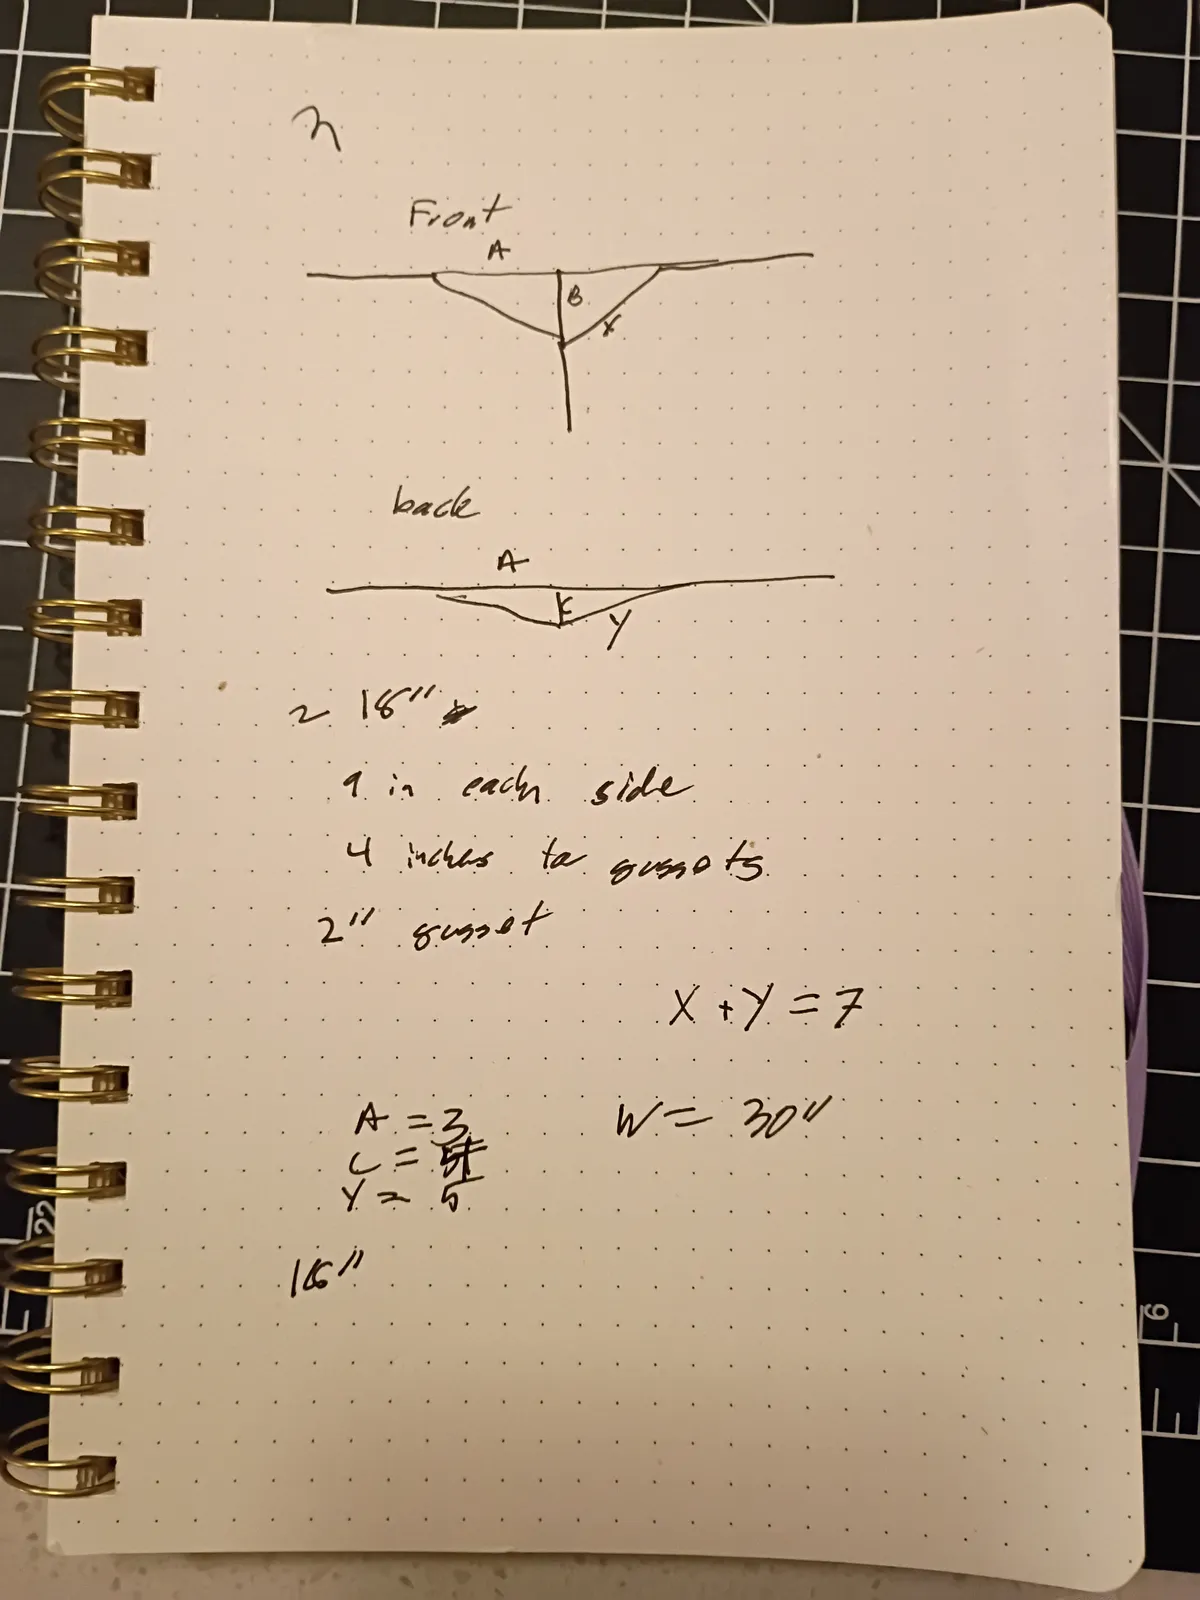 Front
A
B
X
back
A
C
Y
2 18"
9 in each side
4 inches to gussets
2" gusset
X + Y = 7
A = 3
W = 30"
C =
Y = 5
18"
22
6